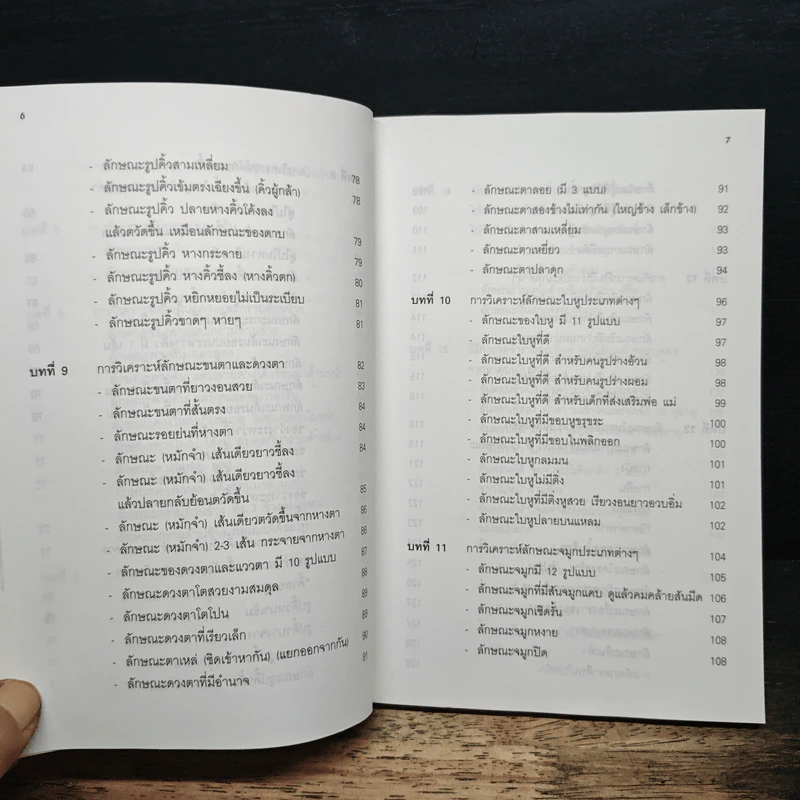 6
- ลักษณะรูปคิ้วสามเหลี่ยม 78
- ลักษณะรูปคิ้วเข้มตรงเฉียงขึ้น (คิ้วผู้กล้า) 78
- ลักษณะรูปคิ้ว ปลายหางคิ้วโค้งลง
แล้วตวัดขึ้น เหมือนลักษณะของดาบ 79
- ลักษณะรูปคิ้ว หางกระจาย 79
- ลักษณะรูปคิ้ว หางคิ้วชี้ลง (หางคิ้วตก) 80
- ลักษณะรูปคิ้ว หยิกหยอยไม่เป็นระเบียบ 81
- ลักษณะรูปคิ้วขาดๆ หายๆ 81
บทที่ 9 การวิเคราะห์ลักษณะขนตาและดวงตา 82
- ลักษณะขนตาที่ยาวงอนสวย 83
- ลักษณะขนตาที่สั้นตรง 84
- ลักษณะรอยย่นที่หางตา 84
- ลักษณะ (หมักจำ) เส้นเดียวยาวชี้ลง 84
- ลักษณะ (หมักจำ) เส้นเดียวยาวชี้ลง
แล้วปลายกลับย้อนตวัดขึ้น 85
- ลักษณะ (หมักจำ) เส้นเดียวตวัดขึ้นจากหางตา 86
- ลักษณะ (หมักจำ) 2-3 เส้น กระจายจากหางตา 86
- ลักษณะของดวงตาและแววตา มี 10 รูปแบบ 87
- ลักษณะดวงตาโตสวยงามสมดุล 88
- ลักษณะดวงตาโตโปน 89
- ลักษณะดวงตาที่เรียวเล็ก 89
- ลักษณะตาเหล่ (ชิดเข้าหากัน) (แยกออกจากกัน) 90
- ลักษณะดวงตาที่มีอำนาจ 91
7
- ลักษณะตาลอย (มี 3 แบบ) 91
- ลักษณะตาสองข้างไม่เท่ากัน (ใหญ่ข้าง เล็กข้าง) 92
- ลักษณะตาสามเหลี่ยม 93
- ลักษณะตาเหยี่ยว 93
- ลักษณะตาปลาดุก 94
บทที่ 10 การวิเคราะห์ลักษณะใบหูประเภทต่างๆ 96
- ลักษณะของใบหู มี 11 รูปแบบ 97
- ลักษณะใบหูที่ดี 97
- ลักษณะใบหูที่ดี สำหรับคนรูปร่างอ้วน 98
- ลักษณะใบหูที่ดี สำหรับคนรูปร่างผอม 98
- ลักษณะใบหูที่ดี สำหรับเด็กที่ส่งเสริมพ่อ แม่ 99
- ลักษณะใบหูที่มีขอบหูขรุขระ 100
- ลักษณะใบหูที่มีขอบในพลิกออก 100
- ลักษณะใบหูกลมมน 101
- ลักษณะใบหูไม่มีติ่ง 101
- ลักษณะใบหูที่มีติ่งหูสวย เรียวงอนยาวอวบอิ่ม 102
- ลักษณะใบหูปลายบนแหลม 102
บทที่ 11 การวิเคราะห์ลักษณะจมูกประเภทต่างๆ 104
- ลักษณะจมูกมี 12 รูปแบบ 105
- ลักษณะจมูกที่มีสันจมูกแคบ ดูแล้วคมคล้ายสันมีด 106
- ลักษณะจมูกเชิดรั้น 107
- ลักษณะจมูกหงาย 108
- ลักษณะจมูกปิด 108